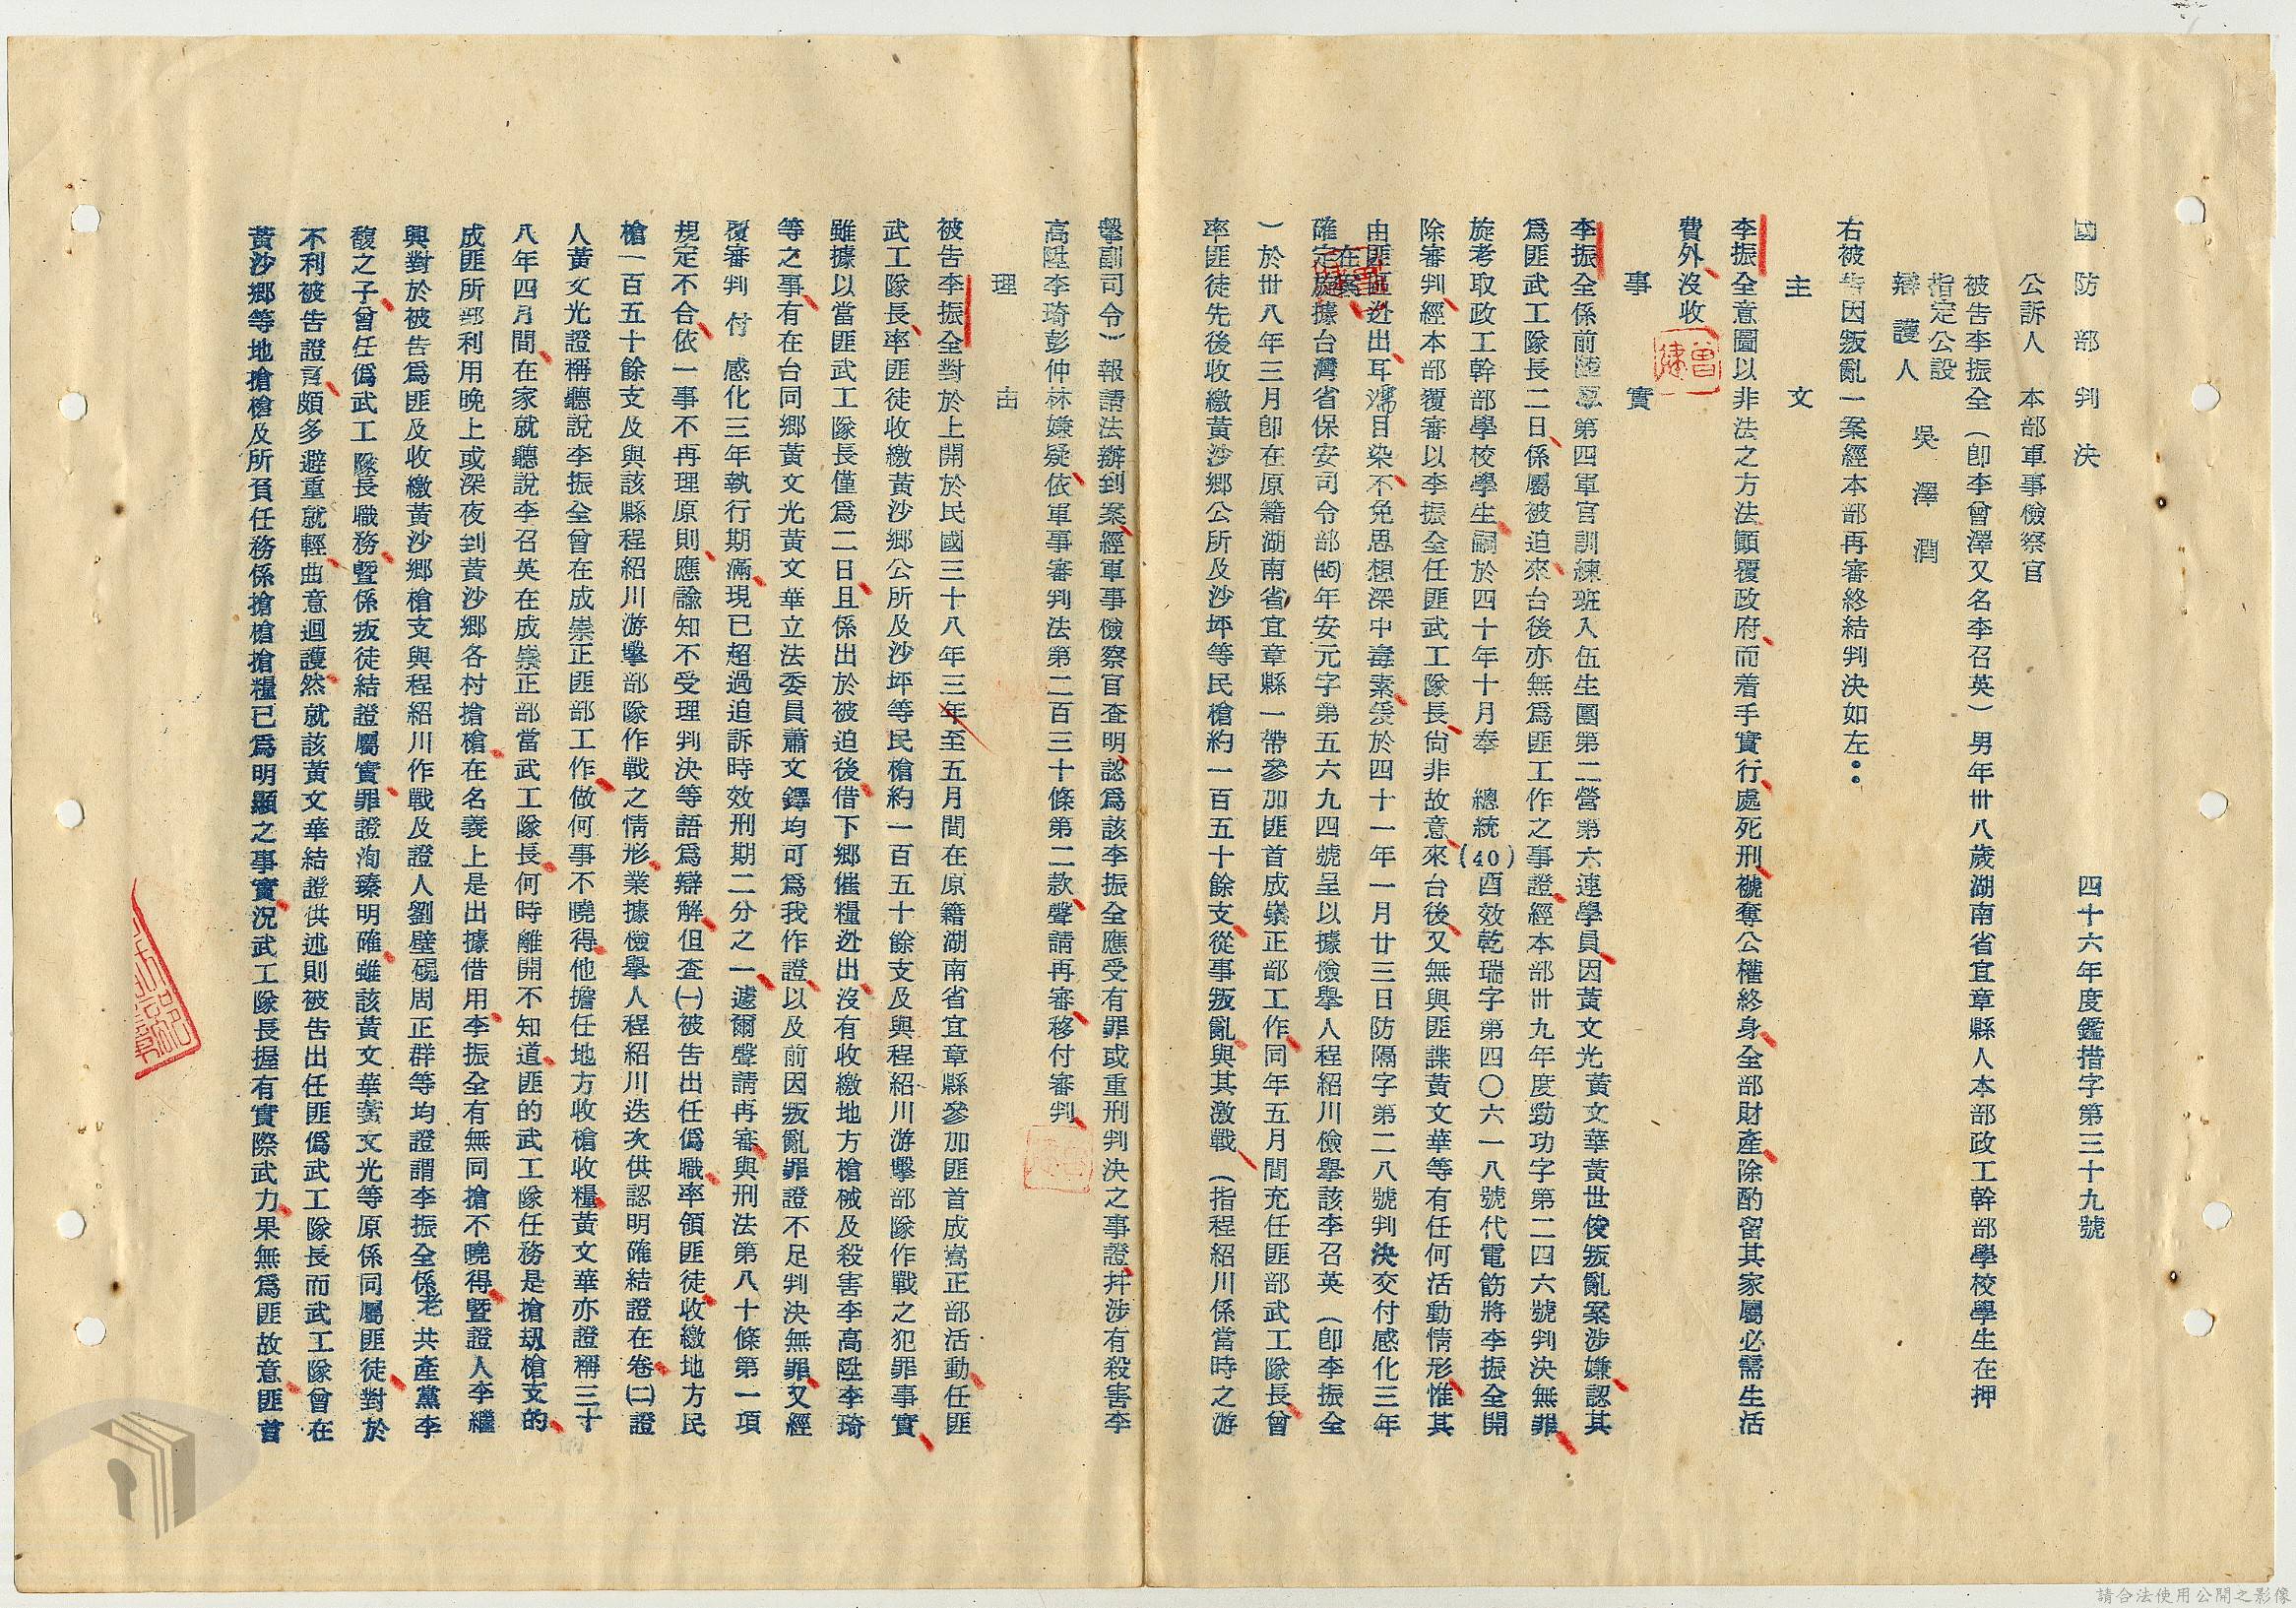 國防部判決　四十六年度鑑措字第三十九號
公訴人　本部軍事檢察官
被告李振全（卽李曾澤又名李召英）男年卅八歲湖南省宜章縣人本部政工幹部學校學生在押
指定公設
辯護人　吳澤潤
右被告因叛亂一案經本部再審終結判決如左：
主文
李振全意圖以非法之方法顛覆政府而着手實行處死刑褫奪公權終身全部財產除酌留其家屬必需生活
費外沒收
事實
李振全係前陸軍第四軍官訓練班入伍生團第二營第六連學員因黃文光黃文華黃世俊叛亂案涉嫌認其
爲匪武工隊長二日係屬被迫來台後亦無爲匪工作之事證經本部卅九年度勁功字第二四六號判決無罪
旋考取政工幹部學校學生嗣於四十年十月奉　總統(40)酉效乾瑞字第四〇六一八號代電飭將李振全開
除審判經本部覆審以李振全任匪武工隊長尙非故意來台後又無與匪諜黃文華等有任何活動情形惟其
由匪區逃出耳濡目染不免思想深中毒素爰於四十一年一月廿三日防隔字第二八號判決交付感化三年
確定在案旋據台灣省保安司令部(45)年安元字第五六九四號呈以據檢舉人程紹川檢舉該李召英（卽李振全
）於卅八年三月卽在原籍湖南省宜章縣一帶參加匪首成崇正部工作同年五月間充任匪部武工隊長曾
率匪徒先後收繳黃沙鄉公所及沙坪等民槍約一百五十餘支從事叛亂與其激戰（指程紹川係當時之游
擊副司令）報請法辦到案經軍事檢察官查明認爲該李振全應受有罪或重刑判決之事證幷涉有殺害李
高陞李琦彭仲林嫌疑依軍事審判法第二百三十條第二款聲請再審移付審判
理由
被告李振全對於上開於民國三十八年三年至五月間在原籍湖南省宜章縣參加匪首成嵩正部活動任匪
武工隊長率匪徒收繳黃沙鄉公所及沙坪等民槍約一百五十餘支及與程紹川游擊部隊作戰之犯罪事實
雖據以當匪武工隊長僅爲二日且係出於被迫後借下鄉催糧逃出沒有收繳地方槍械及殺害李高陞李琦
等之事有在台同鄉黃文光黃文華立法委員蕭文鐸均可爲我作證以及前因叛亂罪證不足判決無罪又經
覆審判付感化三年執行期滿現已超過追訴時效刑期二分之一遽爾聲請再審與刑法第八十條第一項
規定不合依一事不再理原則應諭知不受理判決等語爲辯解但查㈠被告出任僞職率領匪徒收繳地方民
槍一百五十餘支及與該縣程紹川游擊部隊作戰之情形業據檢舉人程紹川迭次供認明確結證在卷㈡證
人黃文光證稱聽說李振全曾在成崇正匪部工作做何事不曉得他擔任地方收槍收糧黃文華亦證稱三十
八年四月間在家就聽說李召英在成崇正部當武工隊長何時離開不知道匪的武工隊任務是搶刧槍支的
成匪所部利用晚上或深夜到黃沙鄉各村搶槍在名義上是出據借用李振全有無同搶不曉得暨證人李繼
興對於被告爲匪及收繳黃沙鄉槍支與程紹川作戰及證人劉壁碭周正群等均證謂李振全係老共產黨李
馥之子曾任僞武工隊長職務暨係叛徒結證屬實罪證洵臻明確雖該黃文華黃文光等原係同屬匪徒對於
不利被告證言頗多避重就輕曲意迴護然就該黃文華結證供述則被告出任匪僞武工隊長而武工隊曾在
黃沙鄉等地搶槍及所負任務係搶槍搶糧已爲明顯之事實況武工隊長握有實際武力果無爲匪故意匪首
請合法使用公開之影像